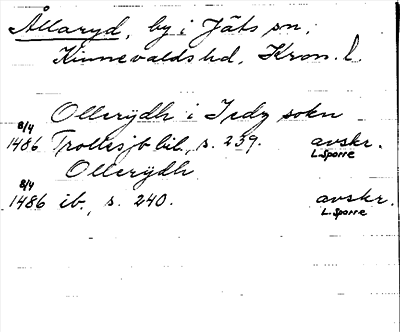 Ållaryd, by i Jäts sn,
Kinnevalds hd, Kron. l.
Ollerydh i Iedz sokn
8/4
1486 Trollesjb bil., s. 239. avskr.
L. Sporre
Ollerydh
8/4
1486 ib., s. 240. avskr.
L. Sporre